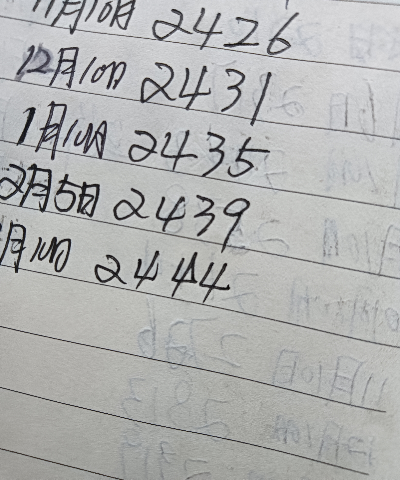 11月10日 2426
12月10日 2431
1月10日 2435
2月5日 2439
月10日 2444